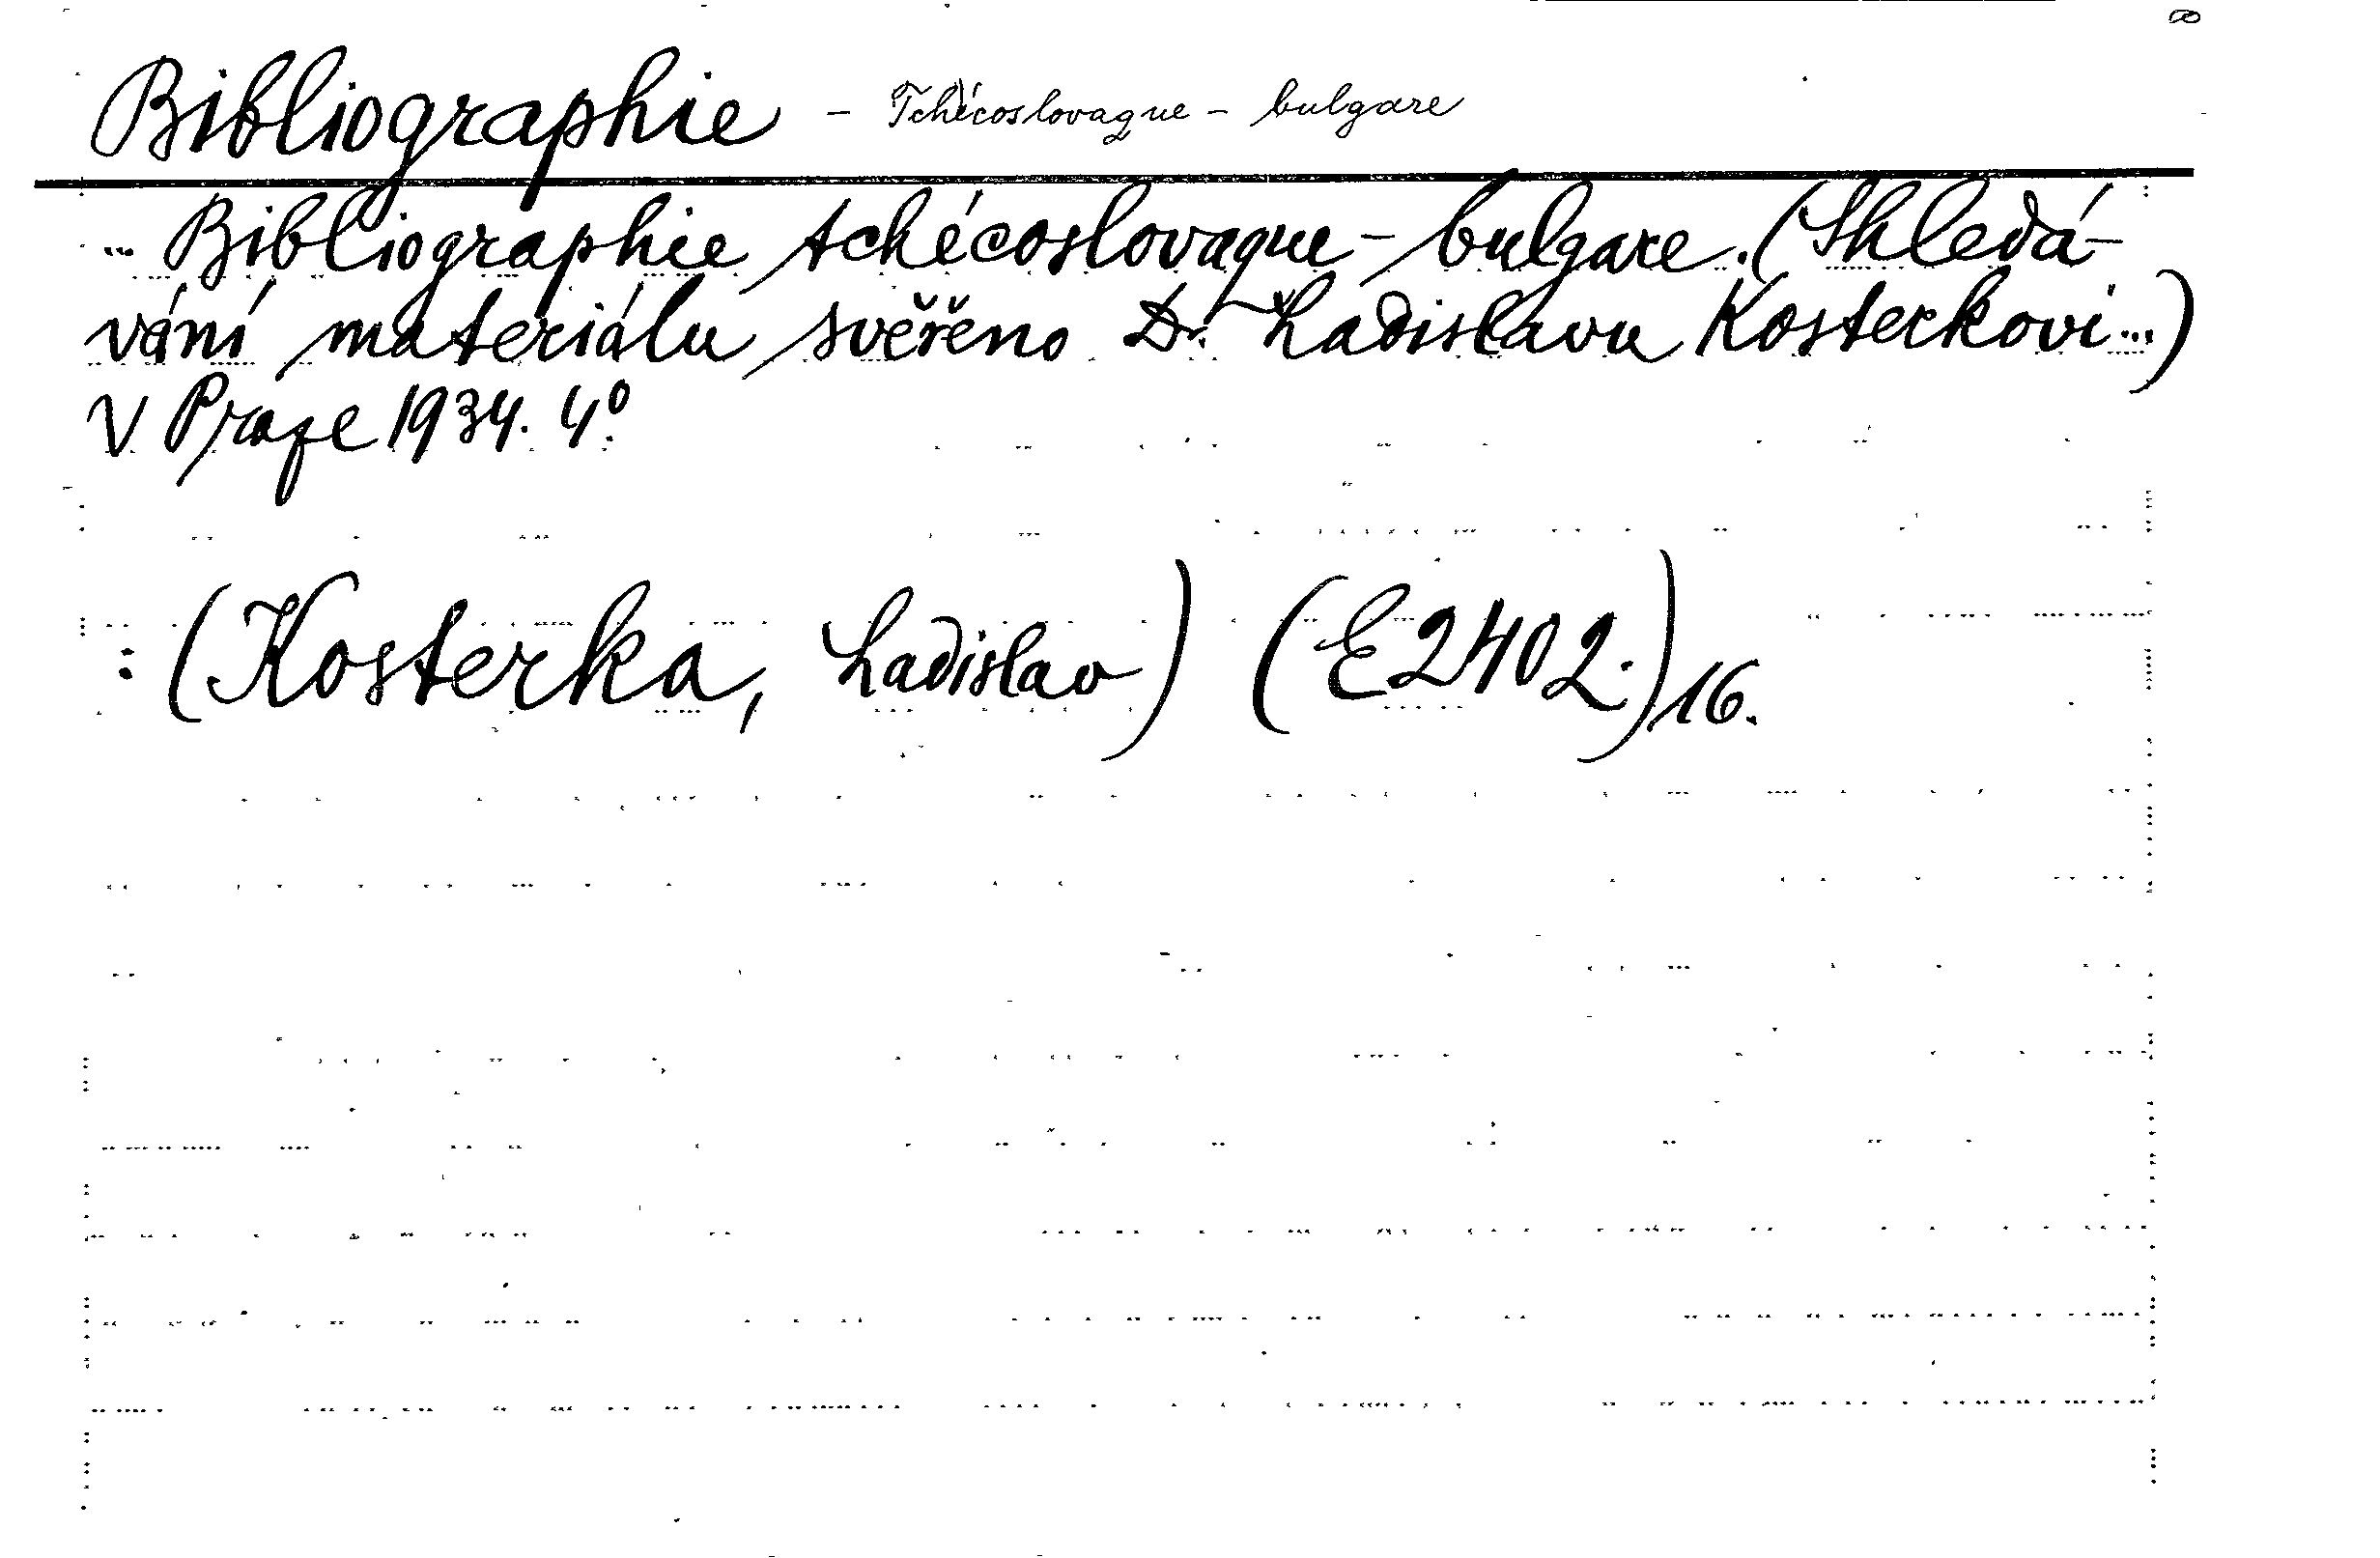 Bibliographie - Tchécoslovaque - bulgare
... Bibliographie tchécoslovaque - bulgare. (Shledá-
vání materiálu svěřeno Dr. Ladislavu Kosterkovi...)
V Praze 1934. 4°.
: (Kosterka, Ladislav) (E2402.)16.